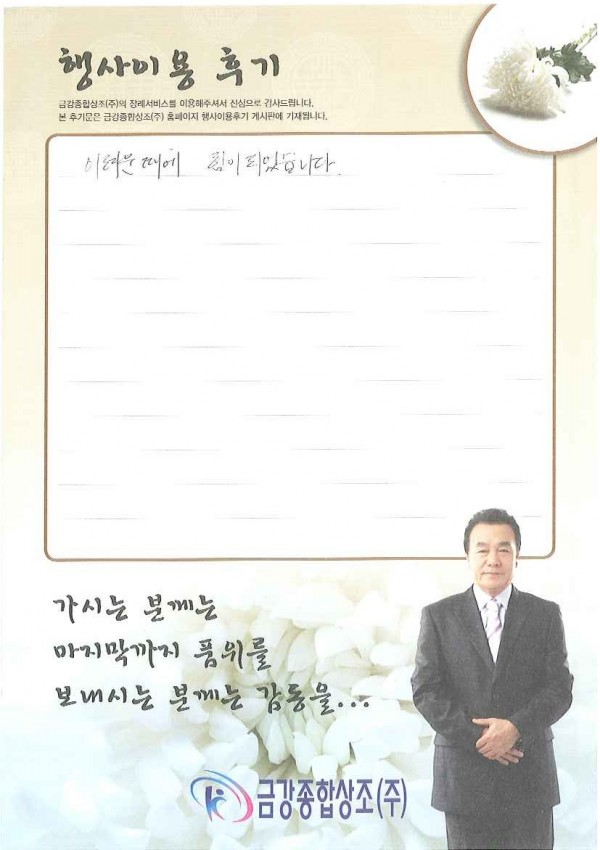 행사이용 후기
금강종합상조(주)의 장례서비스를 이용해주셔서 진심으로 감사드립니다.
본 후기문은 금강종합상조(주) 홈페이지 행사이용후기 게시판에 기재됩니다.
어려운 때에 힘이 되었습니다.
가시는 분께는
마지막까지 품위를
보내시는 분께는 감동을...
금강종합상조(주)